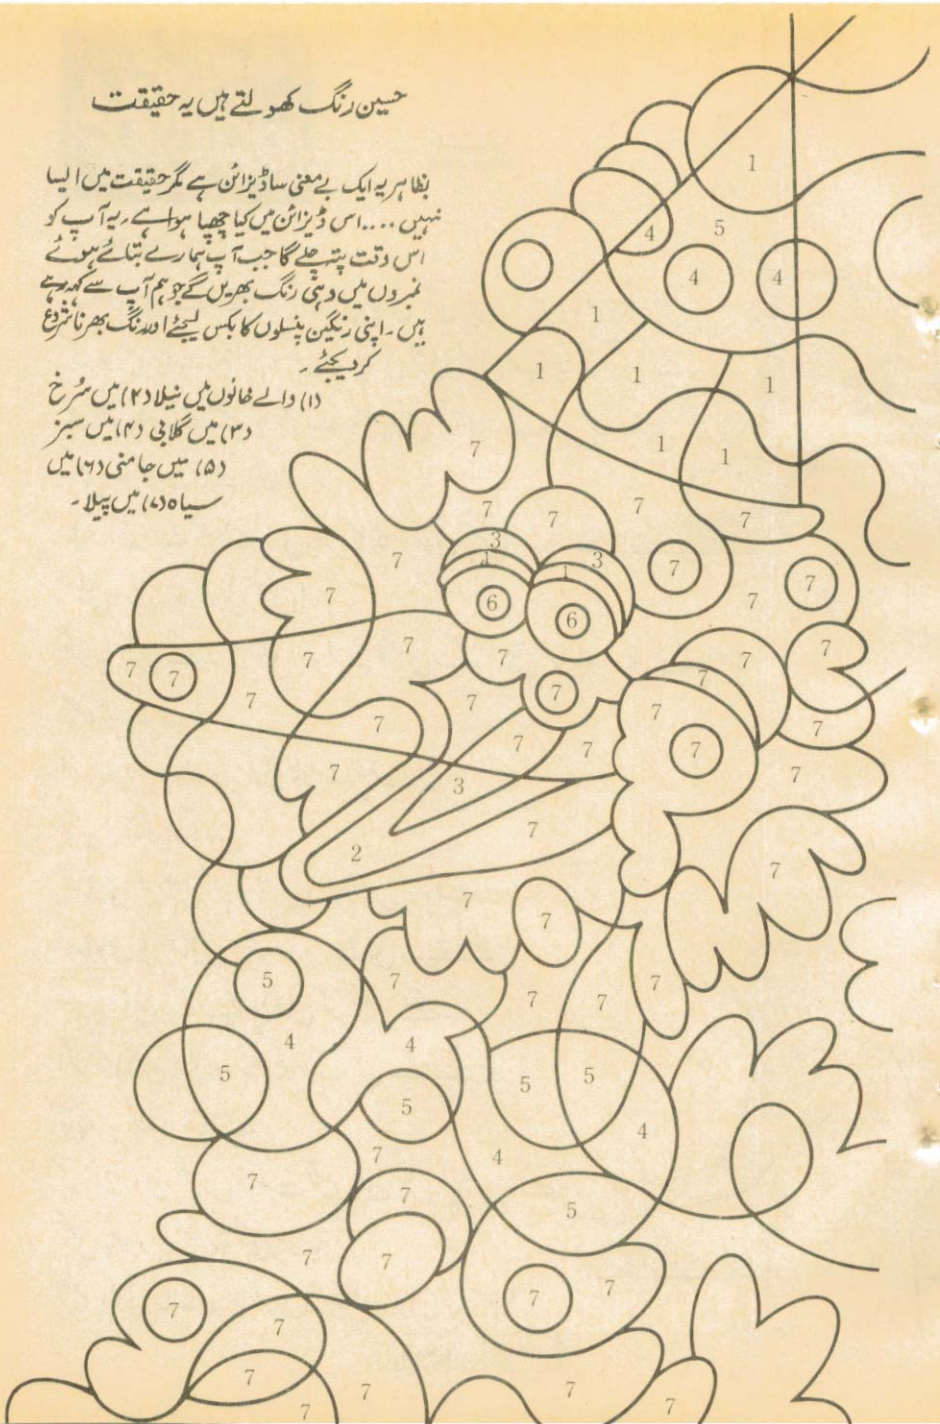 حسین رنگ کھولتے ہیں یہ حقیقت
بظاہر یہ ایک بے معنی ساڈیزائن ہے مگر حقیقت میں ایسا
نہیں .... اس ڈیزائن میں کیا چھپا ہوا ہے ۔ یہ آپ کو
اس وقت پتہ چلے گا جب آپ ہمارے بتائے ہوئے
نمبروں میں وہی رنگ بھریں گے جو ہم آپ سے کہہ رہے
ہیں ۔ اپنی رنگین پنسلوں کا بکس لیجئے اور رنگ بھرنا شروع
کردیجئے ۔
(۱) والے خانوں میں نیلا (۲) میں سُرخ
(۳) میں گلابی (۴) میں سبز
(۵) میں جامنی (۶) میں
سیاہ (۷) میں پیلا ۔
1
5
4
4 4
1
1 1 1
1 1
7
7 7 7 7
3 3
7 1 1 7 7
7 6 6 7
7 7 7 7 7
7 7 7
7 7 7 7 7
7 7 7 7 7
7 3 7
2 7 7
7 7
5 7 7 7 7
4 4
5 5 5 5
4
7 4
7 7 5
7 7 7
7 7
7
7 7 7
7 7